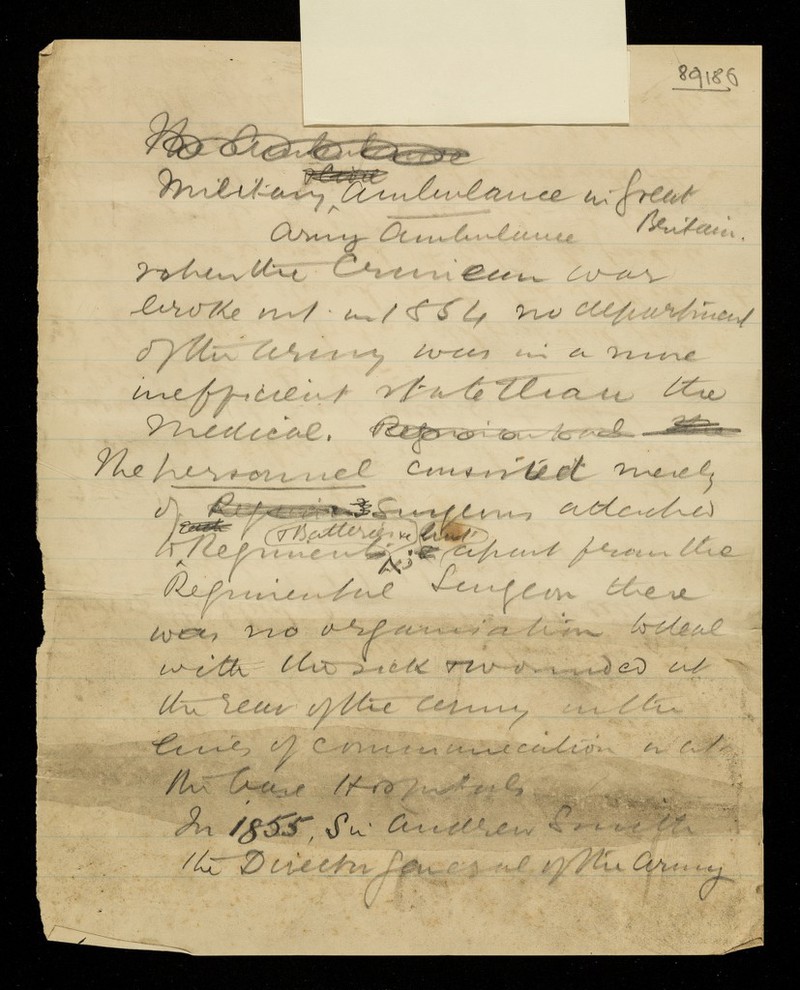 89186
The Ambulance
Military Ambulance in Great
Britain.
Army Ambulance
when the Crimean war
broke out in 1854 no department
of the Army was in a more
inefficient state than the
medical. Regimental the
The personnel consisted merely
of Surgeons attached
each & Batteries but
to Regiments apart from the
Regimental Surgeon there
was no organisation to deal
with the sick & wounded at
the rear of the army on the
lines of communication or at
the base Hospitals
In 1855, Sir Andrew Smith
the Director General of the Army